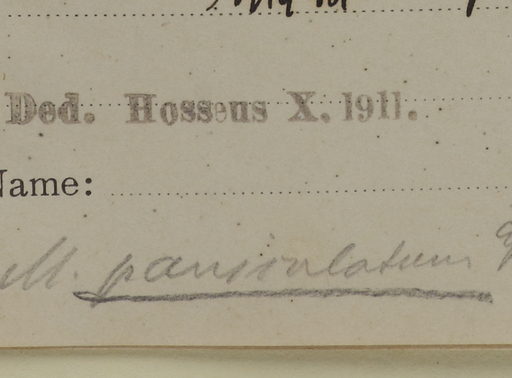 Ded. Hosseus X. 1911.
Name:
M. paniculatum